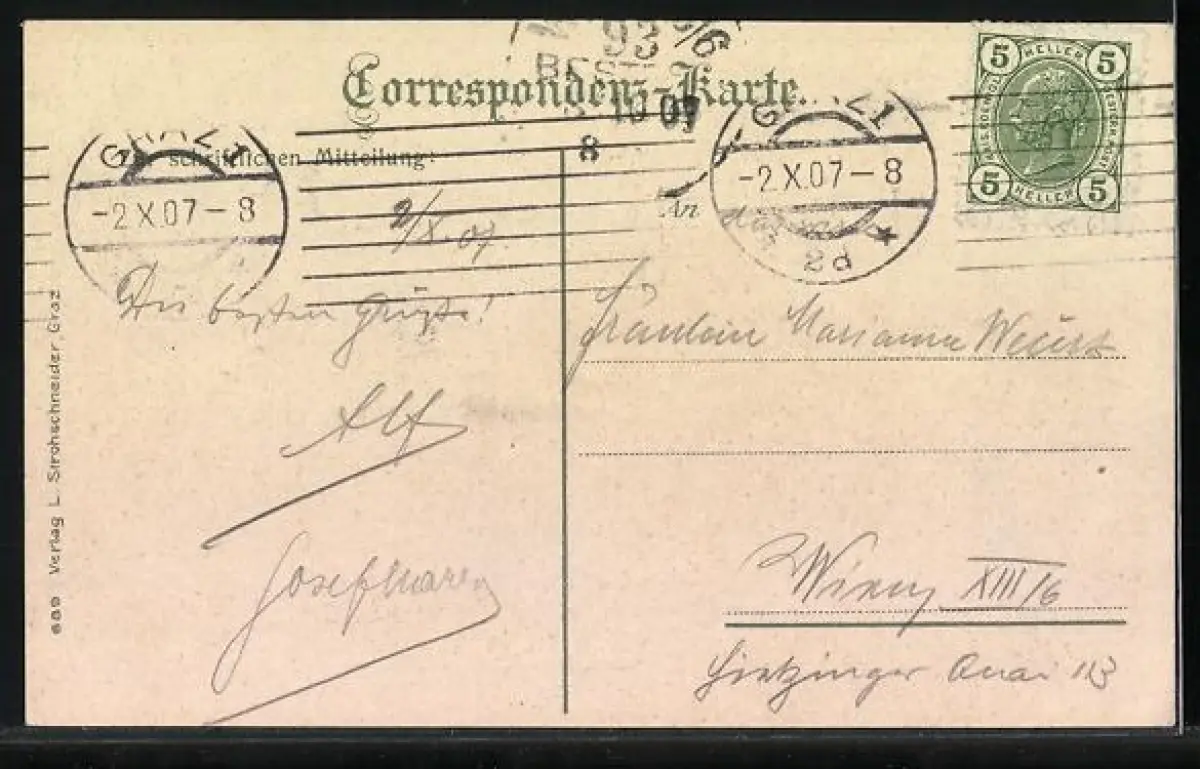 Correspondenz-Karte.
93
BEST
10 07
8
GRAZ 1
-2.X.07-8
schriftlichen Mitteilung:
GRAZ 1
-2.X.07-8
2d
*
5 HELLER 5
5 HELLER 5
An
2/X.07.
Die besten Grüße!
Alf
Josef
Fräulein Marianne
Wien XIII/6
Hietzinger Quai 113
689 Verlag L. Strohschneider, Graz